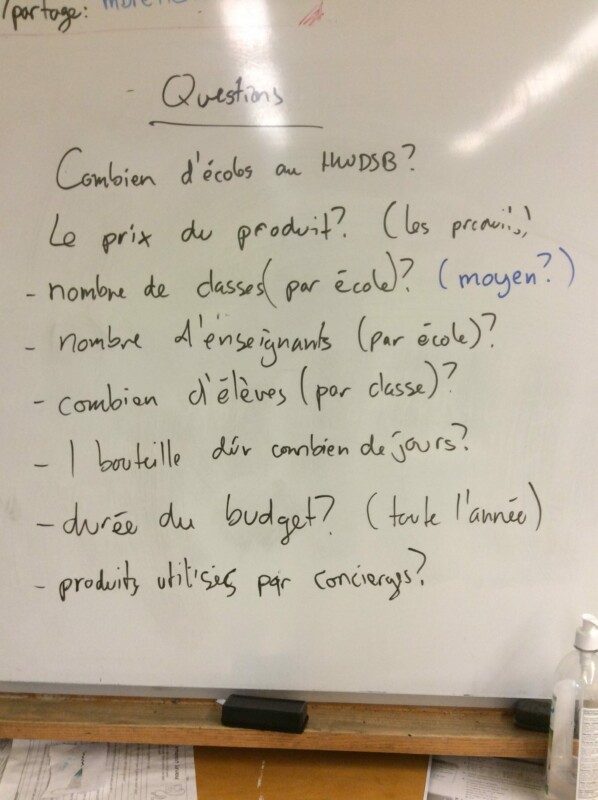 /partage:
- Questions
Combien d'écoles au HWDSB?
Le prix du produit? (les produits)
- nombre de classes (par école)? (moyen?)
- nombre d'enseignants (par école)?
- combien d'élèves (par classe)?
- 1 bouteille dûr combien de jours?
- durée du budget? (toute l'année)
- produits utilisés par concierges?